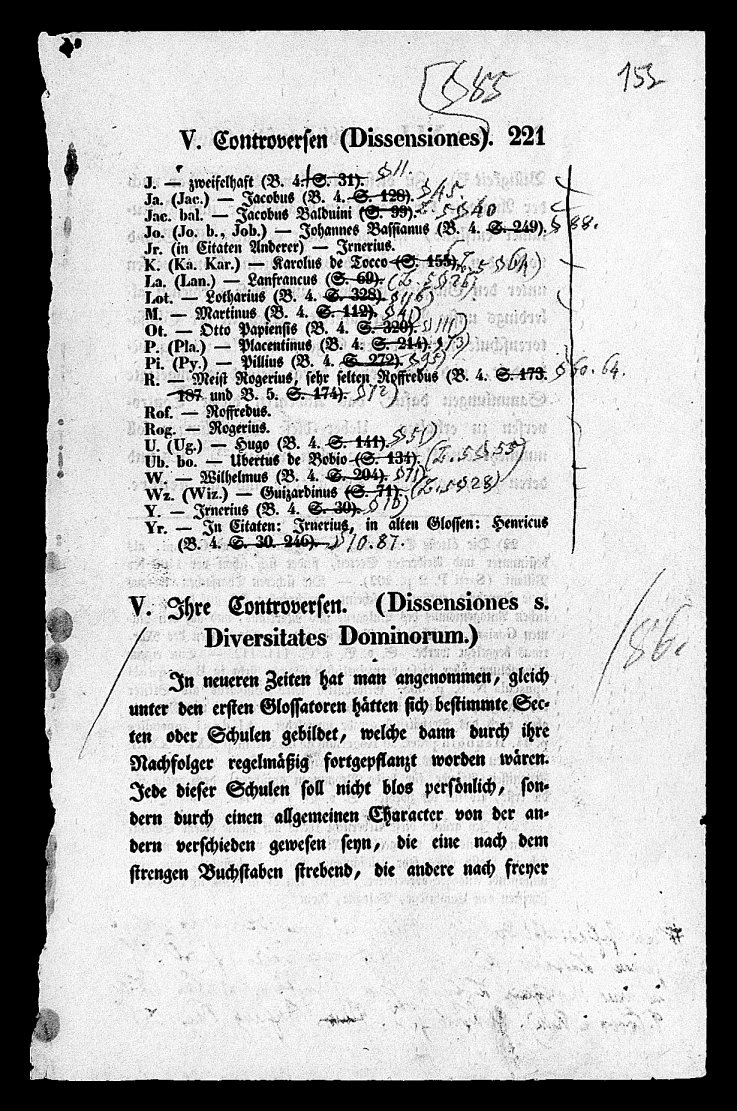 §85
153
V. Controversen (Dissensiones). 221
J. — zweifelhaft (B. 4. S. 31). §11.
Ja. (Jac.) — Jacobus (B. 4. S. 128). §45
Jac. bal. — Jacobus Balduini (S. 99). §40
Jo. (Jo. b., Job.) — Johannes Bassianus (B. 4. S. 249). §88.
Jr. (in Citaten Anderer) — Irnerius.
K. (Ka. Kar.) — Karolus de Tocco (S. 155). 5 §64)
La. (Lan.) — Lanfrancus (S. 69). 5 §26)
Lot. — Lotharius (B. 4. S. 328). §116)
M. — Martinus (B. 4. S. 112). §41)
Ot. — Otto Papiensis (B. 4. S. 320). §111)
P. (Pla.) — Placentinus (B. 4. S. 214). §73)
Pi. (Py.) — Pillius (B. 4. S. 272). §95)
R. — Meist Rogerius, sehr selten Roffredus (B. 4. S. 173. §60. 64.
187 und B. 5. S. 174). §72)
Rof. — Roffredus.
Rog. — Rogerius.
U. (Ug.) — Hugo (B. 4. S. 141). §51)
Ub. bo. — Ubertus de Bobio (S. 134). 5 §55)
W. — Wilhelmus (B. 4. S. 204). §71)
Wz. (Wiz.) — Guizardinus (S. 71). 5 §28)
Y. — Irnerius (B. 4. S. 30). §10)
Yr. — In Citaten: Irnerius, in alten Glossen: Henricus
(B. 4. S. 30. 246). §10. 87.
V. Ihre Controversen. (Dissensiones s.
Diversitates Dominorum.)
§86.
In neueren Zeiten hat man angenommen, gleich
unter den ersten Glossatoren hätten sich bestimmte Sec-
ten oder Schulen gebildet, welche dann durch ihre
Nachfolger regelmäßig fortgepflanzt worden wären.
Jede dieser Schulen soll nicht blos persönlich, son-
dern durch einen allgemeinen Character von der an-
dern verschieden gewesen seyn, die eine nach dem
strengen Buchstaben strebend, die andere nach freyer